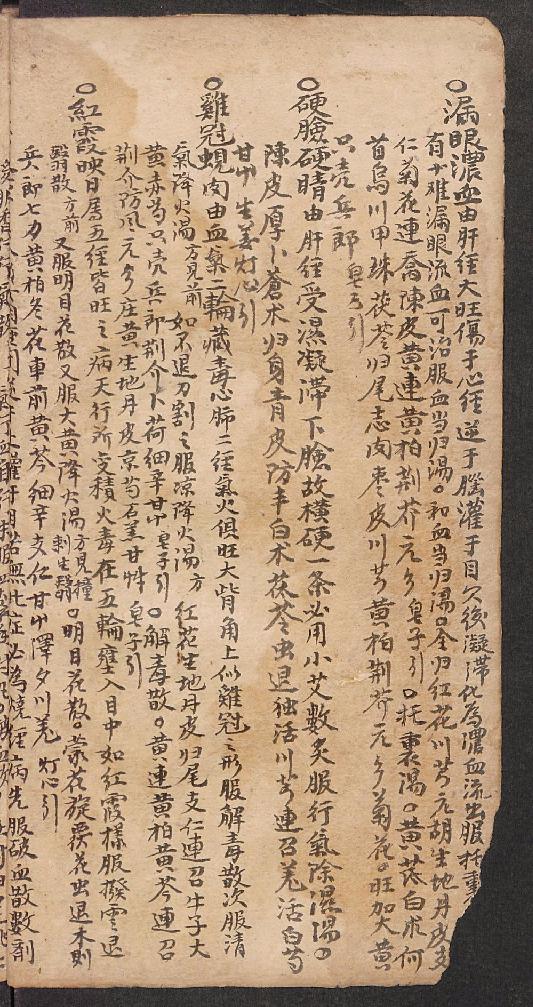 ○漏眼濃血由肝經大旺傷于心經逆于腦灌于目久後凝滯化為濃血流出服托裏
有少难漏眼流血可治服血当归湯○和血当归湯○全归红花川芎元胡生地丹皮支
仁菊花連喬陳皮黄連黄柏荆芥元参皂子引○托裏湯○黄芪白朮何
首烏川甲珠茯苓归尾志肉枣皮川芎黄柏荆芥元参菊花○旺加大黄
只壳兵郎皂子引
○硬臉硬睛由肝經受濕凝滯下臉故横硬一条必用小艾數炙服行氣除濕湯○
陳皮厚卜蒼术归身青皮防丰白术茯苓虫退独活川芎連召羌活白芍
甘艸生姜灯心引
○雞冠蜆肉由血氣二輪藏毒心肺二經氣火俱旺大眥角上似雞冠之形服解毒散次服清
氣降火湯方見前如不退刀割之服凉降火湯方红花生地丹皮归尾支仁連召牛子大
黄赤芍只壳兵郎荆介卜荷細辛甘艸皂子引○解毒散○黄連黄柏黄芩連召
荆介防风元参庄黄生地丹皮京芍石羔甘艸皂子引
○紅霞映日属五經皆旺之病天行所受積火毒在五輪壅入目中如红霞樣服撥雲退
翳散方前又服明目花散又服大黄降火湯方見撞刺生翳○明目花散○蒙花旋覆花虫退木則
兵郎七力黄柏冬花車前黄芩細辛支仁甘艸澤夕川羌灯心引
若無此症必為燒經病先服破血散數剤